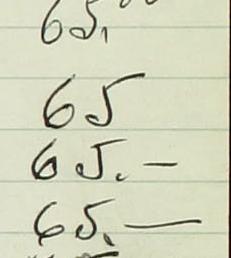 65.00
65
65.-
65.—